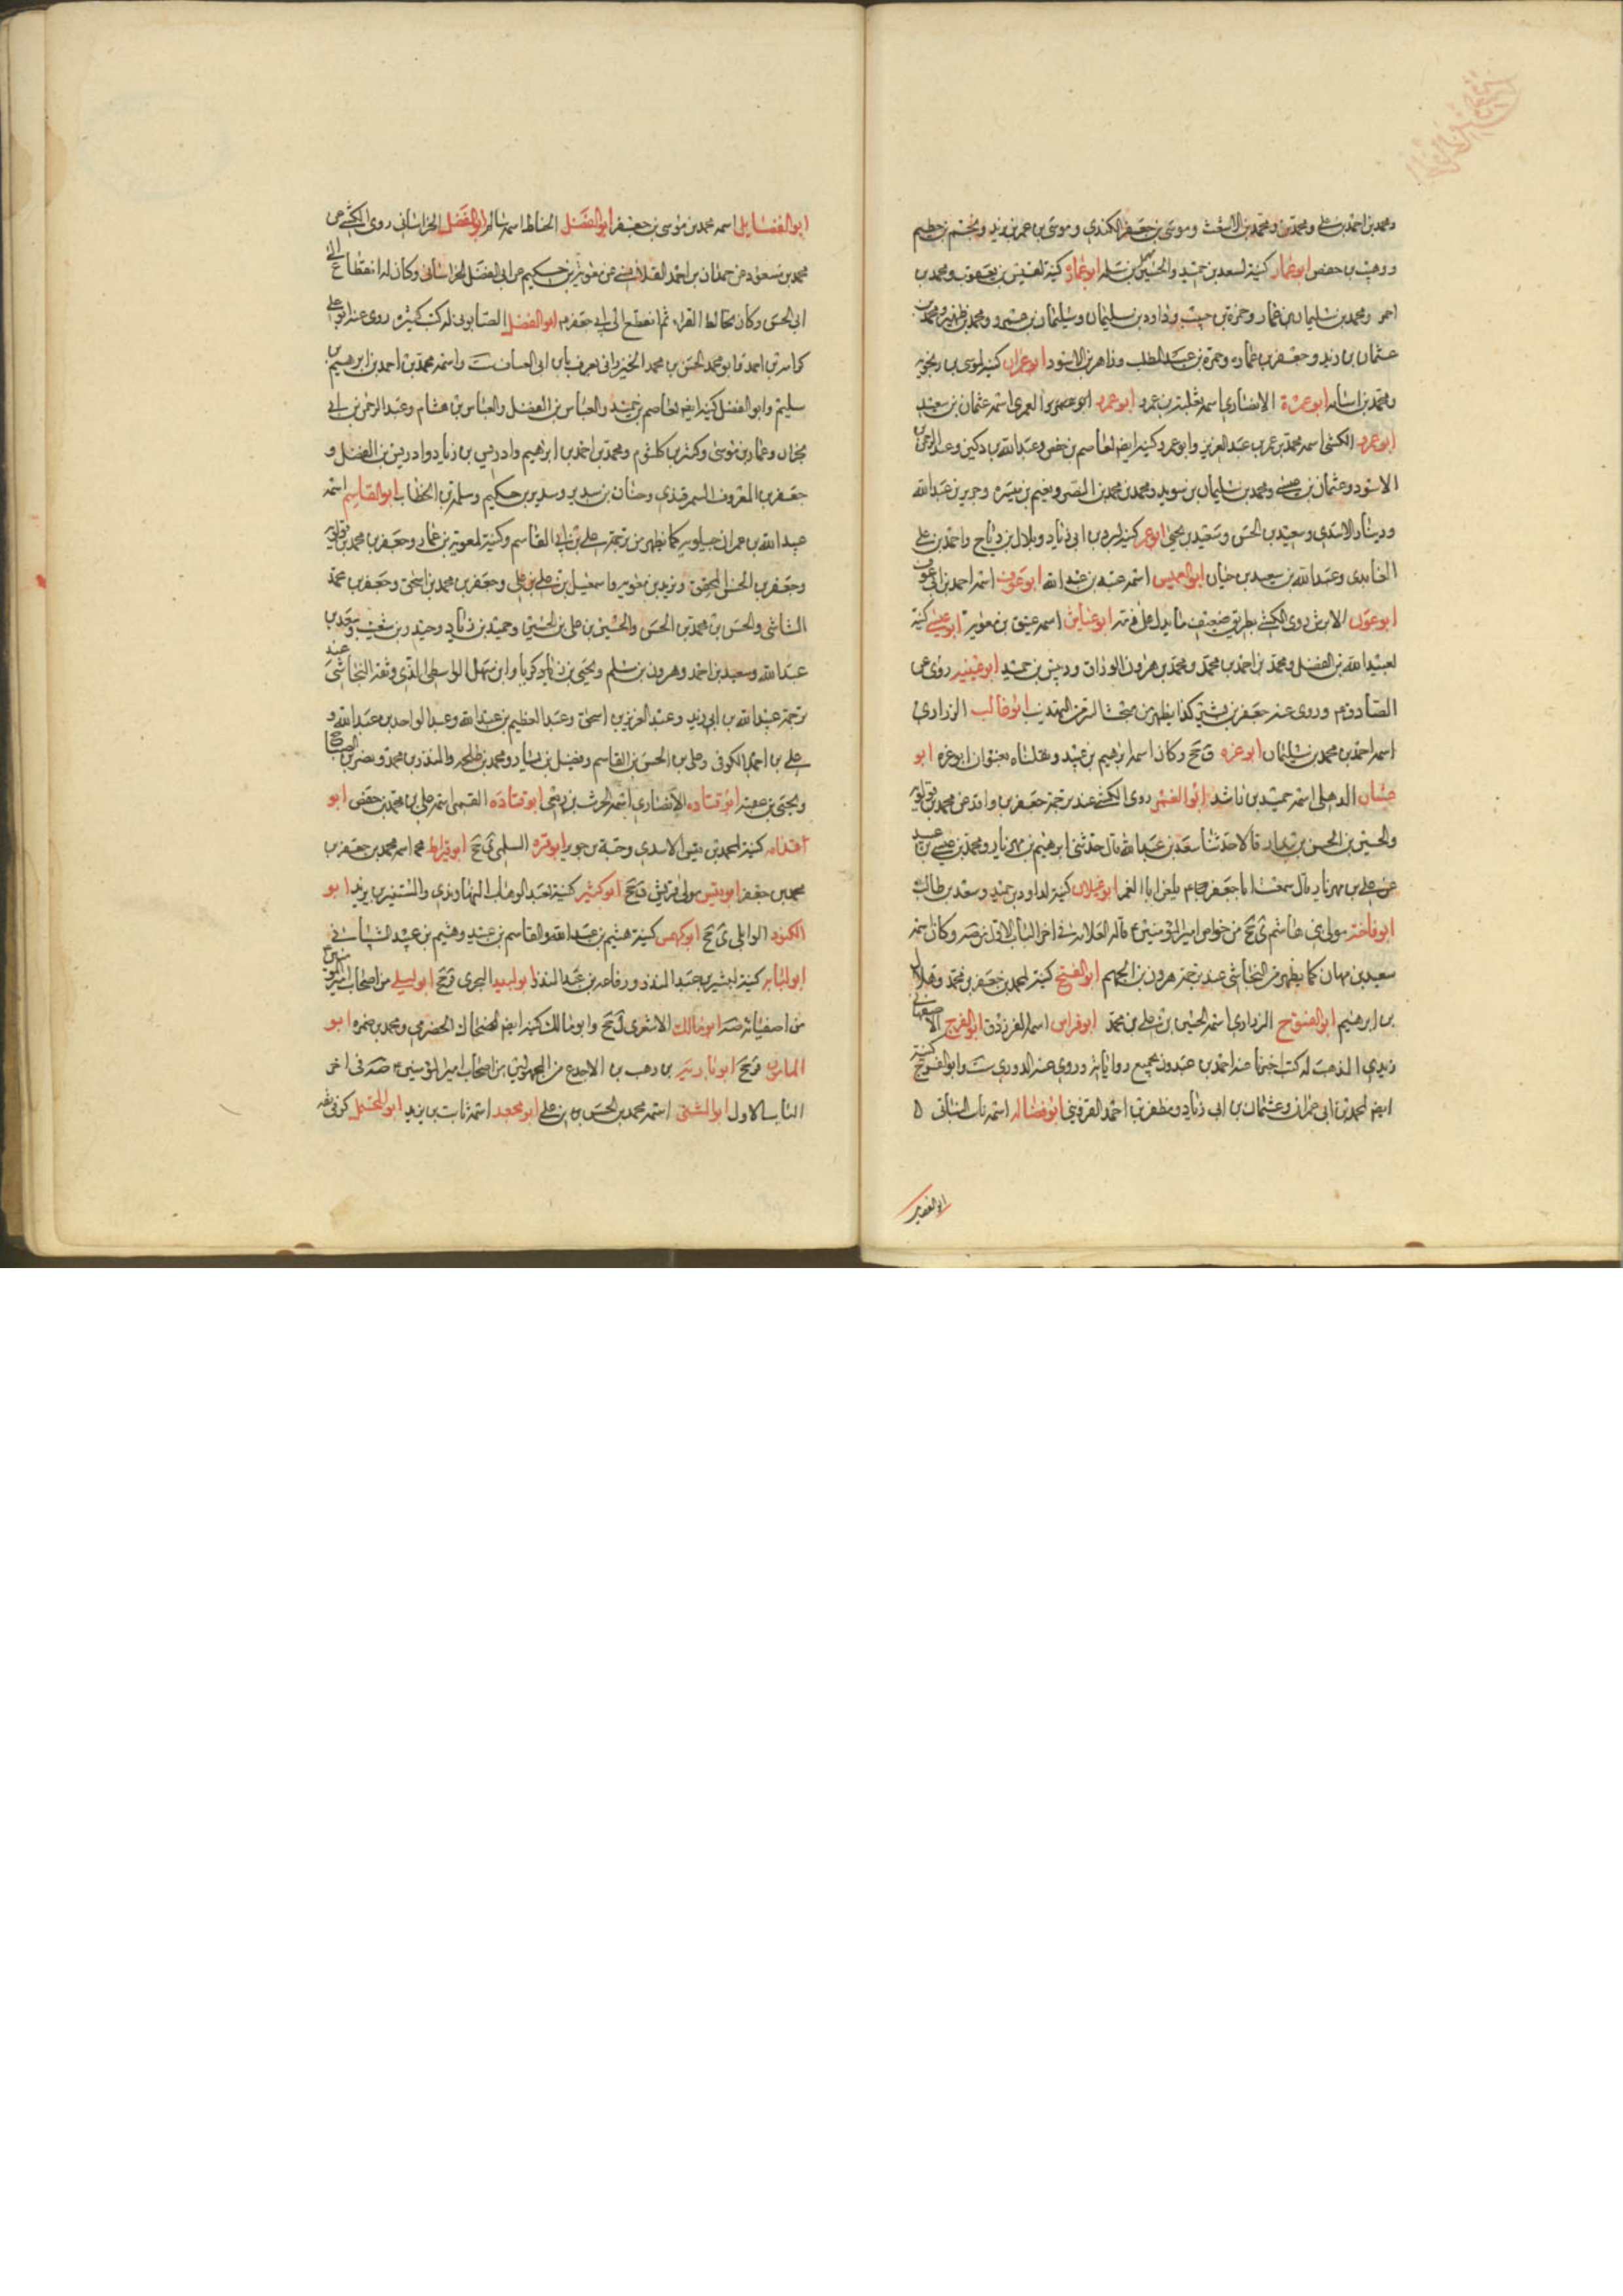 ومحمد بن احمد بن علي ومحمد بن ومحمد بن الاشعث وموسى بن جعفر الكندي وموسى بن عمر بن يزيد
ووهيب بن حفص ابو عمار كنية لسعد بن حميد والحسين بن سلمه ابو عمار كنية لقيس بن يعقوب ومحمد بن
احمر ومحمد بن سليمان بن عمار وحمزة بن حبيب وداود بن سليمان وسليمان بن ومحمد بن
عثمان بن زيد وجعفر بن عماره وحمزة بن عبد المطلب وزاهر بن الاسود ابو عمران كنية لموسى بن
ومحمد بن اسامه ابو عمرة الانصاري اسمه ثعلبة بن عمرو ابو عمرو ابو العمري اسمه عثمان بن سعيد
ابو عمرو الكشي اسمه محمد بن عمر بن عبد العزيز وابو عمرو كنية ايضا لعاصم بن حفص وعبد الله بن دكين وعبد الرحمن بن
الاسود وعثمان بن عيسى ومحمد بن سليمان بن سويد ومحمد بن محمد بن النصر ونعيم بن ميسره وجرير بن عبد الله
ودينار الاسدي وسعيد بن الحسن وسعيد بن يحيى ابو عمر كنية بن ابي زياد وبلال بن رياح واحمد بن علي
وعبد الله بن سعيد بن حيان ابو العميس اسمه عتبه بن عبد الله ابو عوف اسمه احمد بن ابي عوف
ابو عون الابرش روى الكشي بطريق ضعيف ما يدل على ذمه ابو عياش اسمه عتيق بن معوية ابو عيسى كنية
لعبيد الله بن الفضل ومحمد بن احمد بن محمد ومحمد بن هرون الوراق وديس بن حميد ابو عيينه روى عن
الصادق ع وروى عنه جعفر بن بشير كذا يظهر من التهذيب ابو غالب الزراري
اسمه احمد بن محمد بن سليمان ابو غره ق جخ وكان اسمه ابرهيم بن عبيد ونقلناه بعنوان ابو عزه ابو
غسان الذهلي اسمه حميد بن راشد ابو الغمر روى الكشي عند ترجمة جعفر بن واقد عن محمد بن قولويه
والحسين بن الحسن بن بندار قالا حدثنا سعد بن عبد الله قال حدثني ابرهيم بن مهزيار ومحمد بن عيسى بن عبيد
عن علي بن مهزيار قال سمعت ابا جعفر ع يلعن ابا الغمر ابو غيلان كنية لداود بن حميد وسعد بن طالب
ابو فاخته مولى بني هاشم ي جخ من خواص امير المؤمنين ع قاله العلامه في اخر الباب الاول من صه وكان اسمه
سعيد بن مهان كما يظهر من النجاشي عند ترجمة هرون بن الجهم ابو الفتح كنية لمحمد بن جعفر بن محمد وهلال
بن ابرهيم ابو الفتوح الرازي اسمه الحسين بن علي بن محمد ابو فراس اسمه الفرزدق ابو الفرج الاصفهاني
زيدي المذهب له كتب اخبرنا عنه احمد بن عبدون بجميع رواياته وروى عنه الدوري ست وابو الفرج كنية
ايضا لمحمد بن ابي عمران وعثمان بن ابي زياد ومظفر بن احمد القزويني ابو فضاله اسمه ثابت البناني
ابو الفضايل
ابو الفضايل اسمه محمد بن موسى بن جعفر ابو الفضل الحناط اسمه سالم ابو الفضل الخراساني روى الكشي عن
محمد بن مسعود عن حمدان بن احمد القلانسي عن معوية بن حكيم عن ابي الفضل الخراساني وكان له انقطاع الى
ابي الحسن وكان يخالط القراء ثم انقطع الى ابي جعفر ع ابو الفضل الصابوني له كتب كثيره روى عنه ابو علي
كرامه بن احمد وابو محمد الحسن بن محمد الخيزراني يعرف بابن ابي العساف ست واسمه محمد بن احمد بن ابرهيم بن
سليم وابو الفضل كنية ايضا لعاصم بن حميد والعباس بن الفضل والعباس بن هشام وعبد الرحمن بن ابي
نجران وعمار بن موسى وكثير بن كلثوم ومحمد بن احمد بن ابرهيم وادريس بن زياد وادريس بن الفضل و
جعفر بن المعروف السمرقندي وحنان بن سدير وسدير بن حكيم وسلمه بن الخطاب ابو القاسم اسمه
عبيد الله بن عمران كما يظهر من ترجمة علي بن ابي القاسم وكنية لمعوية بن عمار وجعفر بن محمد بن قولويه
وجعفر بن الحسن المحقق وبريد بن معويه واسمعيل بن علي بن علي وجعفر بن محمد بن اسحق وجعفر بن محمد
الشاشي والحسن بن محمد بن الحسن والحسين بن علي بن الحسين وحميد بن زياد وحيدر بن شعيب وسعد بن
عبد الله وسعيد بن احمد وهرون بن مسلم ويحيى بن زكريا وابن سهل الواسطي الذي وثقه النجاشي عند
ترجمة عبيد الله بن ابي زيد وعبد العزيز بن اسحق وعبد العظيم بن عبد الله وعبد الواحد بن عبد الله و
علي بن احمد الكوفي وعلي بن الحسن بن القاسم وفضيل بن يسار ومحمد بن طلحه والمنذر بن محمد ونصر بن الصباح
ويحيى بن عقبه ابو قتاده الانصاري اسمه الحرث بن ربعي ابو قتاده القمي اسمه علي بن محمد بن حفص ابو
قدامه كنية لمحمد بن قيس الاسدي وحبة بن جوير ابو قره السلمي ي جخ ابو قيراط اسمه محمد بن جعفر بن
محمد بن جعفر ابو قيس مولى قريش ق جخ ابو كثير كنية لعبد الوهاب النهاوندي والمستنير بن يزيد ابو
الكنود الوائلي ي جخ ابو كهمس كنية هيثم بن عبد الله والقاسم بن عبيد وهيثم بن عبيد الشيباني
ابو لبابه كنية لبشير بن عبد المنذر ورفاعه بن عبد المنذر ابو لبيد البحري ق جخ ابو ليلى من اصحاب امير المؤمنين ع
من اصفيائه صه ابو مالك الاشعري ل جخ وابو مالك كنية ايضا لضحاك الحضرمي ومحمد بن ضمره ابو
المامون ق جخ بن وهب بن الاجدع من المجهولين من اصحاب امير المؤمنين ع صه في اخر
الباب الاول ابو المثنى اسمه محمد بن الحسن بن علي ابو محجد اسمه ثابت بن يزيد ابو المحتمل كوفي ثقه